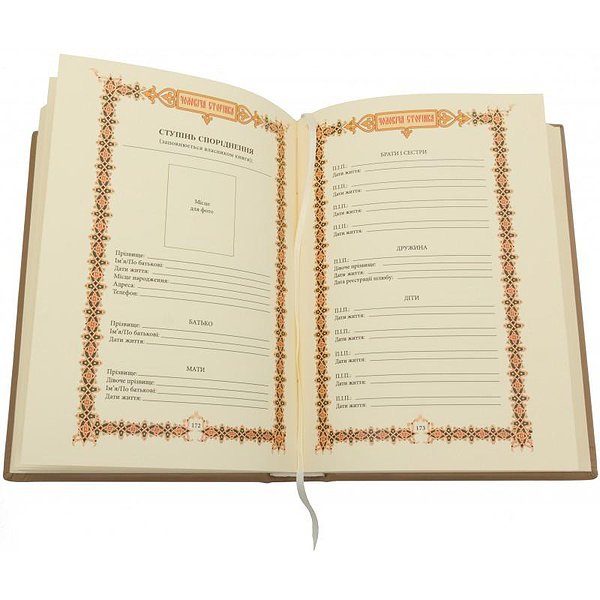 ЧОЛОВІЧА СТОРІНКА
СТУПІНЬ СПОРІДНЕННЯ
(заповнюється власником книги):
Місце
для фото
Прізвище:
Ім'я/По батькові:
Дати життя:
Місце народження:
Адреса:
Телефон:
БАТЬКО
Прізвище:
Ім'я/По батькові:
Дати життя:
МАТИ
Прізвище:
Дівоче прізвище:
Ім'я/По батькові:
Дати життя:
172
ЧОЛОВІЧА СТОРІНКА
БРАТИ І СЕСТРИ
П.І.П.:
Дати життя:
П.І.П.:
Дати життя:
П.І.П.:
Дати життя:
ДРУЖИНА
П.І.П.:
Дівоче прізвище:
Дати життя:
Дата реєстрації шлюбу:
ДІТИ
П.І.П.:
Дати життя:
П.І.П.:
Дати життя:
П.І.П.:
Дати життя:
П.І.П.:
Дати життя:
173